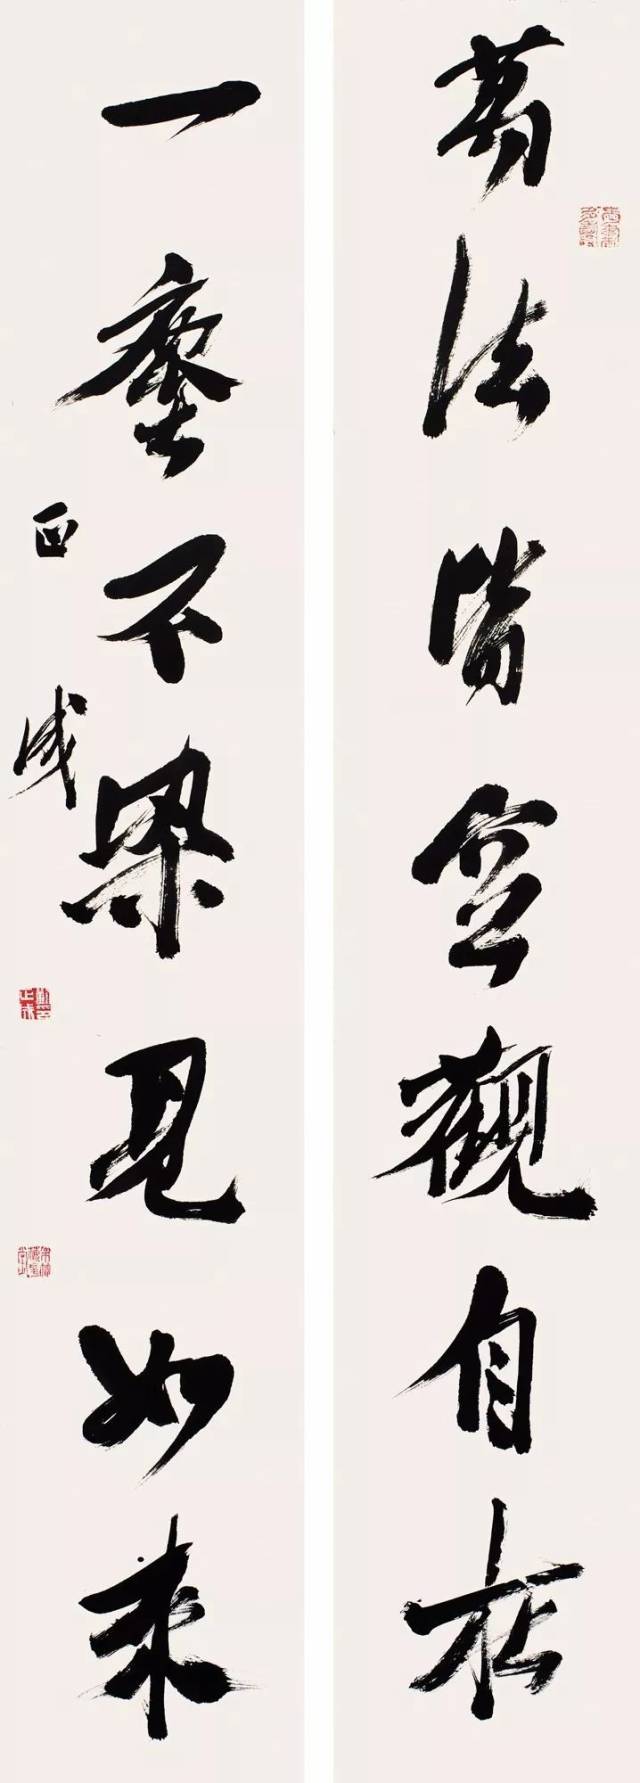 萬法皆空觀自在
一塵不染見如來
正成